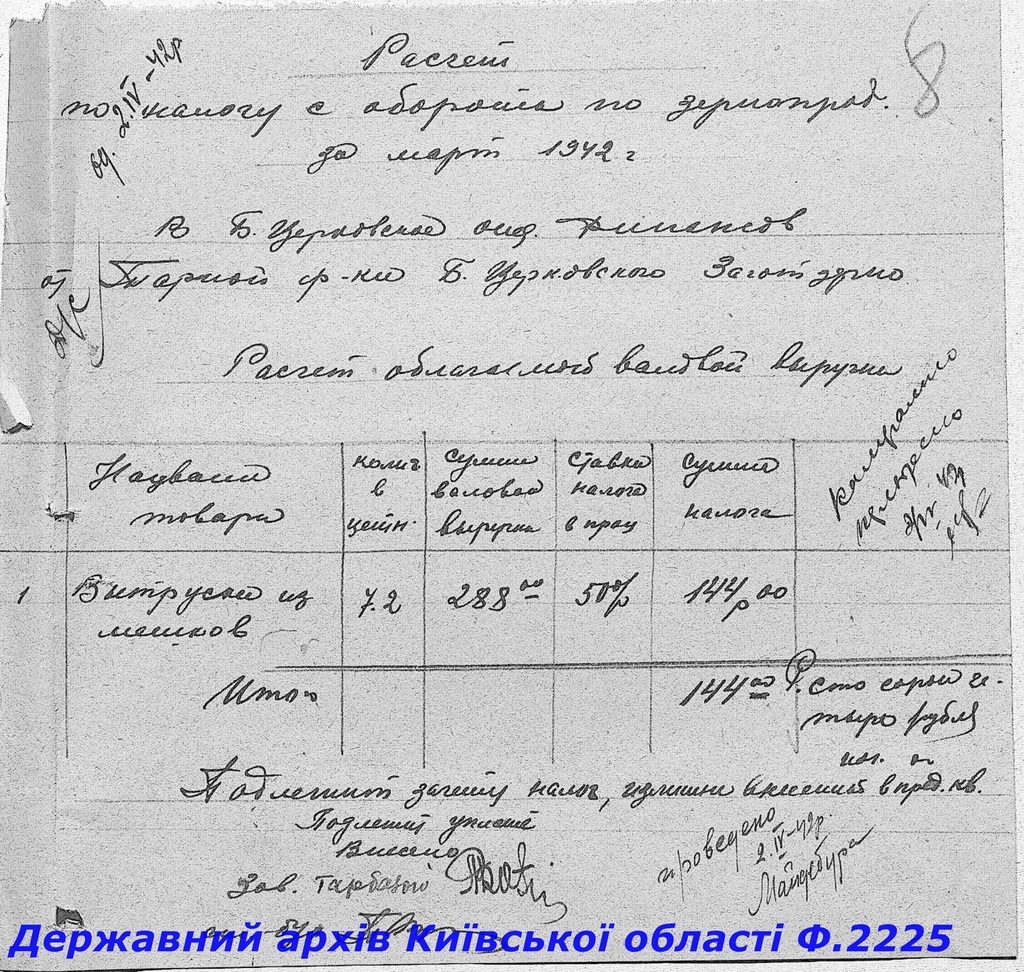 8
Расчет
од. 2.IV-42р
по налогу с оборота по зернопрод.
за март 1942 г
В Б. Церковское отд. Финансов
от Тарной ф-ки Б. Церковского Заготзерно
Расчет облагаемой валовой выручки
Названи товара
колич в центн.
Сумма валовой выручки
Ставка налога в проц
Сумма налога
1 Витруски из мешков 7.2 288 00 50% 144 р 00
Итого 144 00 Р. сто сорок четыре рубля
Подлежит зачету налог, излишне внесений в пред. кв.
Подлежит уплате
Внесено
Зав. Тарбазой
проведено
2.IV-42р.
Державний архів Київської області Ф.2225